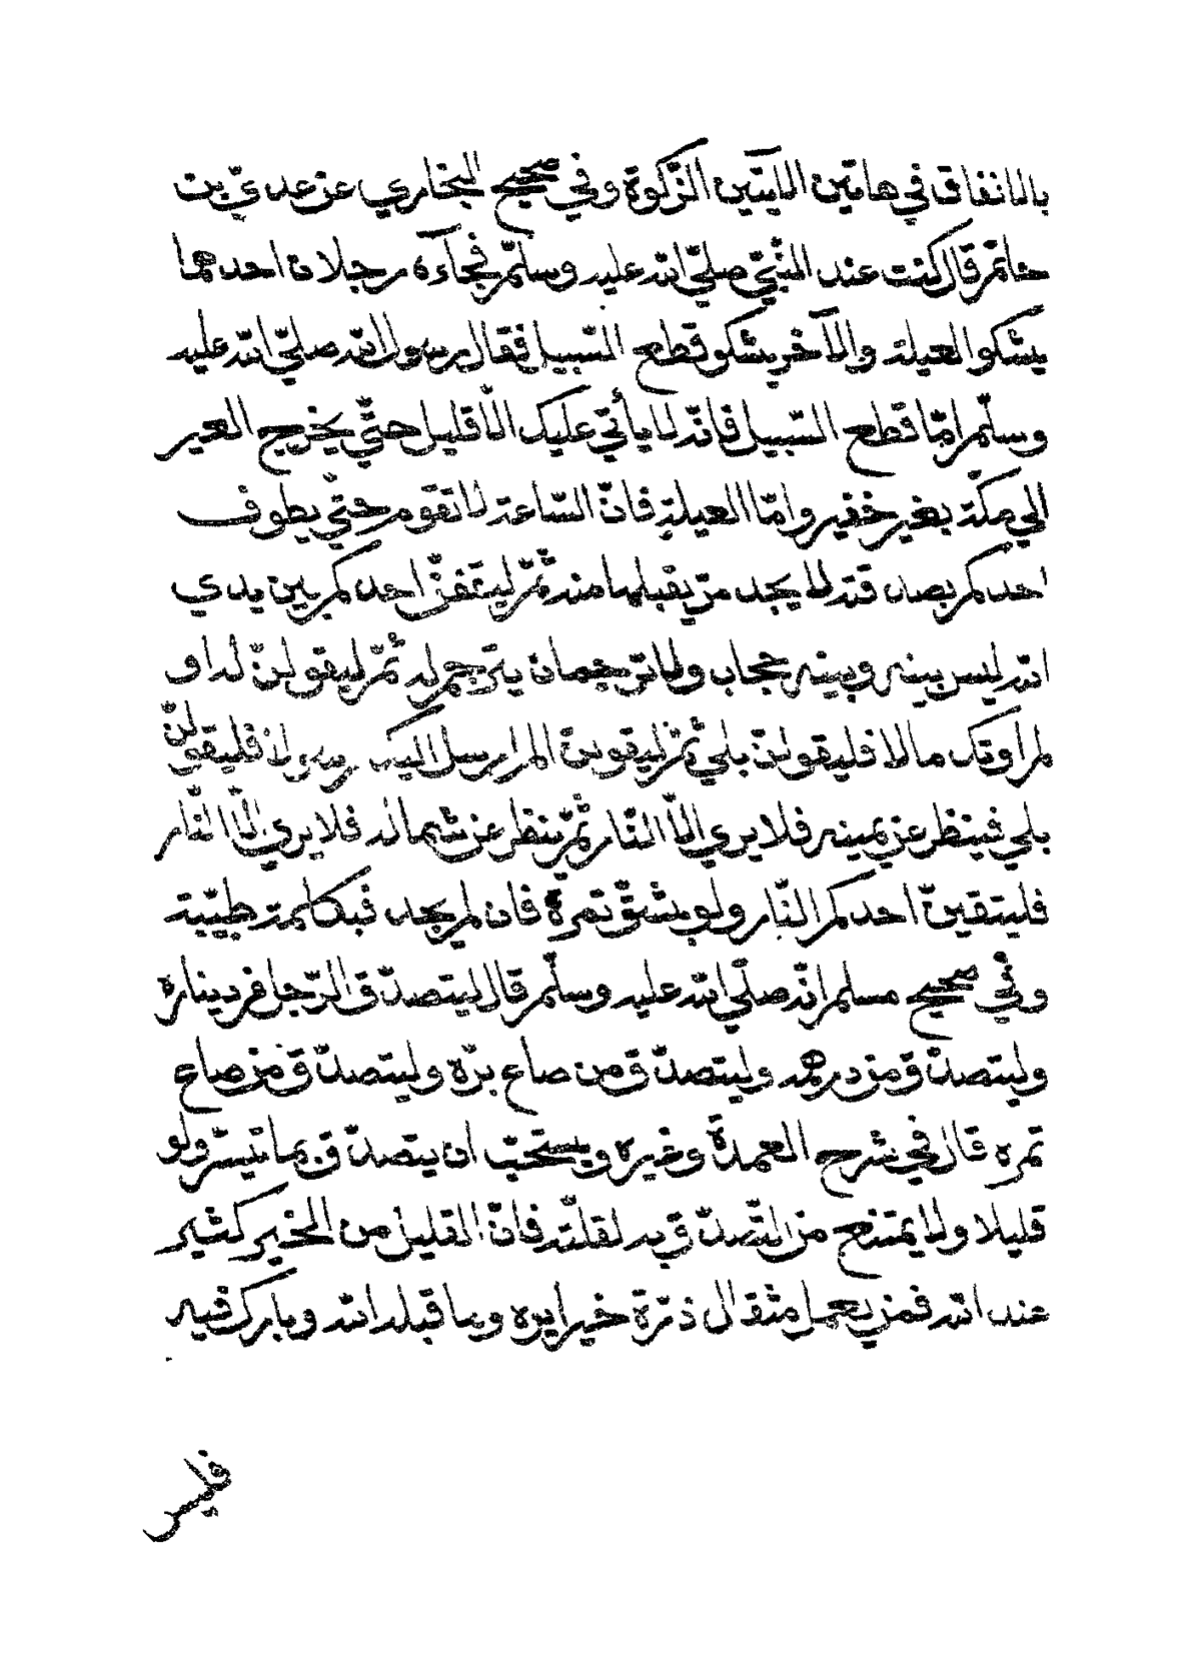 بالانفاق في هاتين الآيتين الزّكوة وفي صحيح البخاري عن عديّ بن
حاتمّ قال كنت عند النّبيّ صلّي الله عليه وسلّم فجآءه رجلان احدهما
يشكو العيلة والآخر يشكو قطع السّبيل فقال رسول الله صلّي الله عليه
وسلّم امّا قطع السّبيل فانّه لا يأتي عليك الّا قليل حتّي يخرج العير
الي مكّة بغير خفير وامّا العيلة فانّ السّاعة لا تقوم حتّي يطوف
احدكم بصدقته لا يجد من يقبلها منه ثمّ ليقفنّ احدكم بين يدي
الله ليس بينه وبينه حجاب ولا ترجمان يترجم له ثمّ ليقولنّ له او
لم أوتك مالا فليقولنّ بلي ثمّ ليقولنّ الم ارسل اليك رسولا فليقولنّ
بلي فينظر عن يمينه فلا يري الّا النّار ثمّ ينظر عن شماله فلا يري الّا النّار
فليتقينّ احدكم النّار ولو بشقّ تمرة فان لم يجد فبكلمة طيّبة
وفي صحيح مسلم انّه صلّي الله عليه وسلّم قال ليتصدّق الرّجل من ديناره
وليتصدّق من درهمه وليتصدّق من صاع برّه وليتصدّق من صاع
تمره قال في شرح العمدة وغيره ويستحبّ ان يتصدّق بما تيسّر ولو
قليلا ولا يمتنع من التّصدّق به لقلّته فانّ القليل من الخير كثير
عند الله فمن يعمل مثقال ذرّة خيرا يره وما قبله الله وبارك فيه
فليس